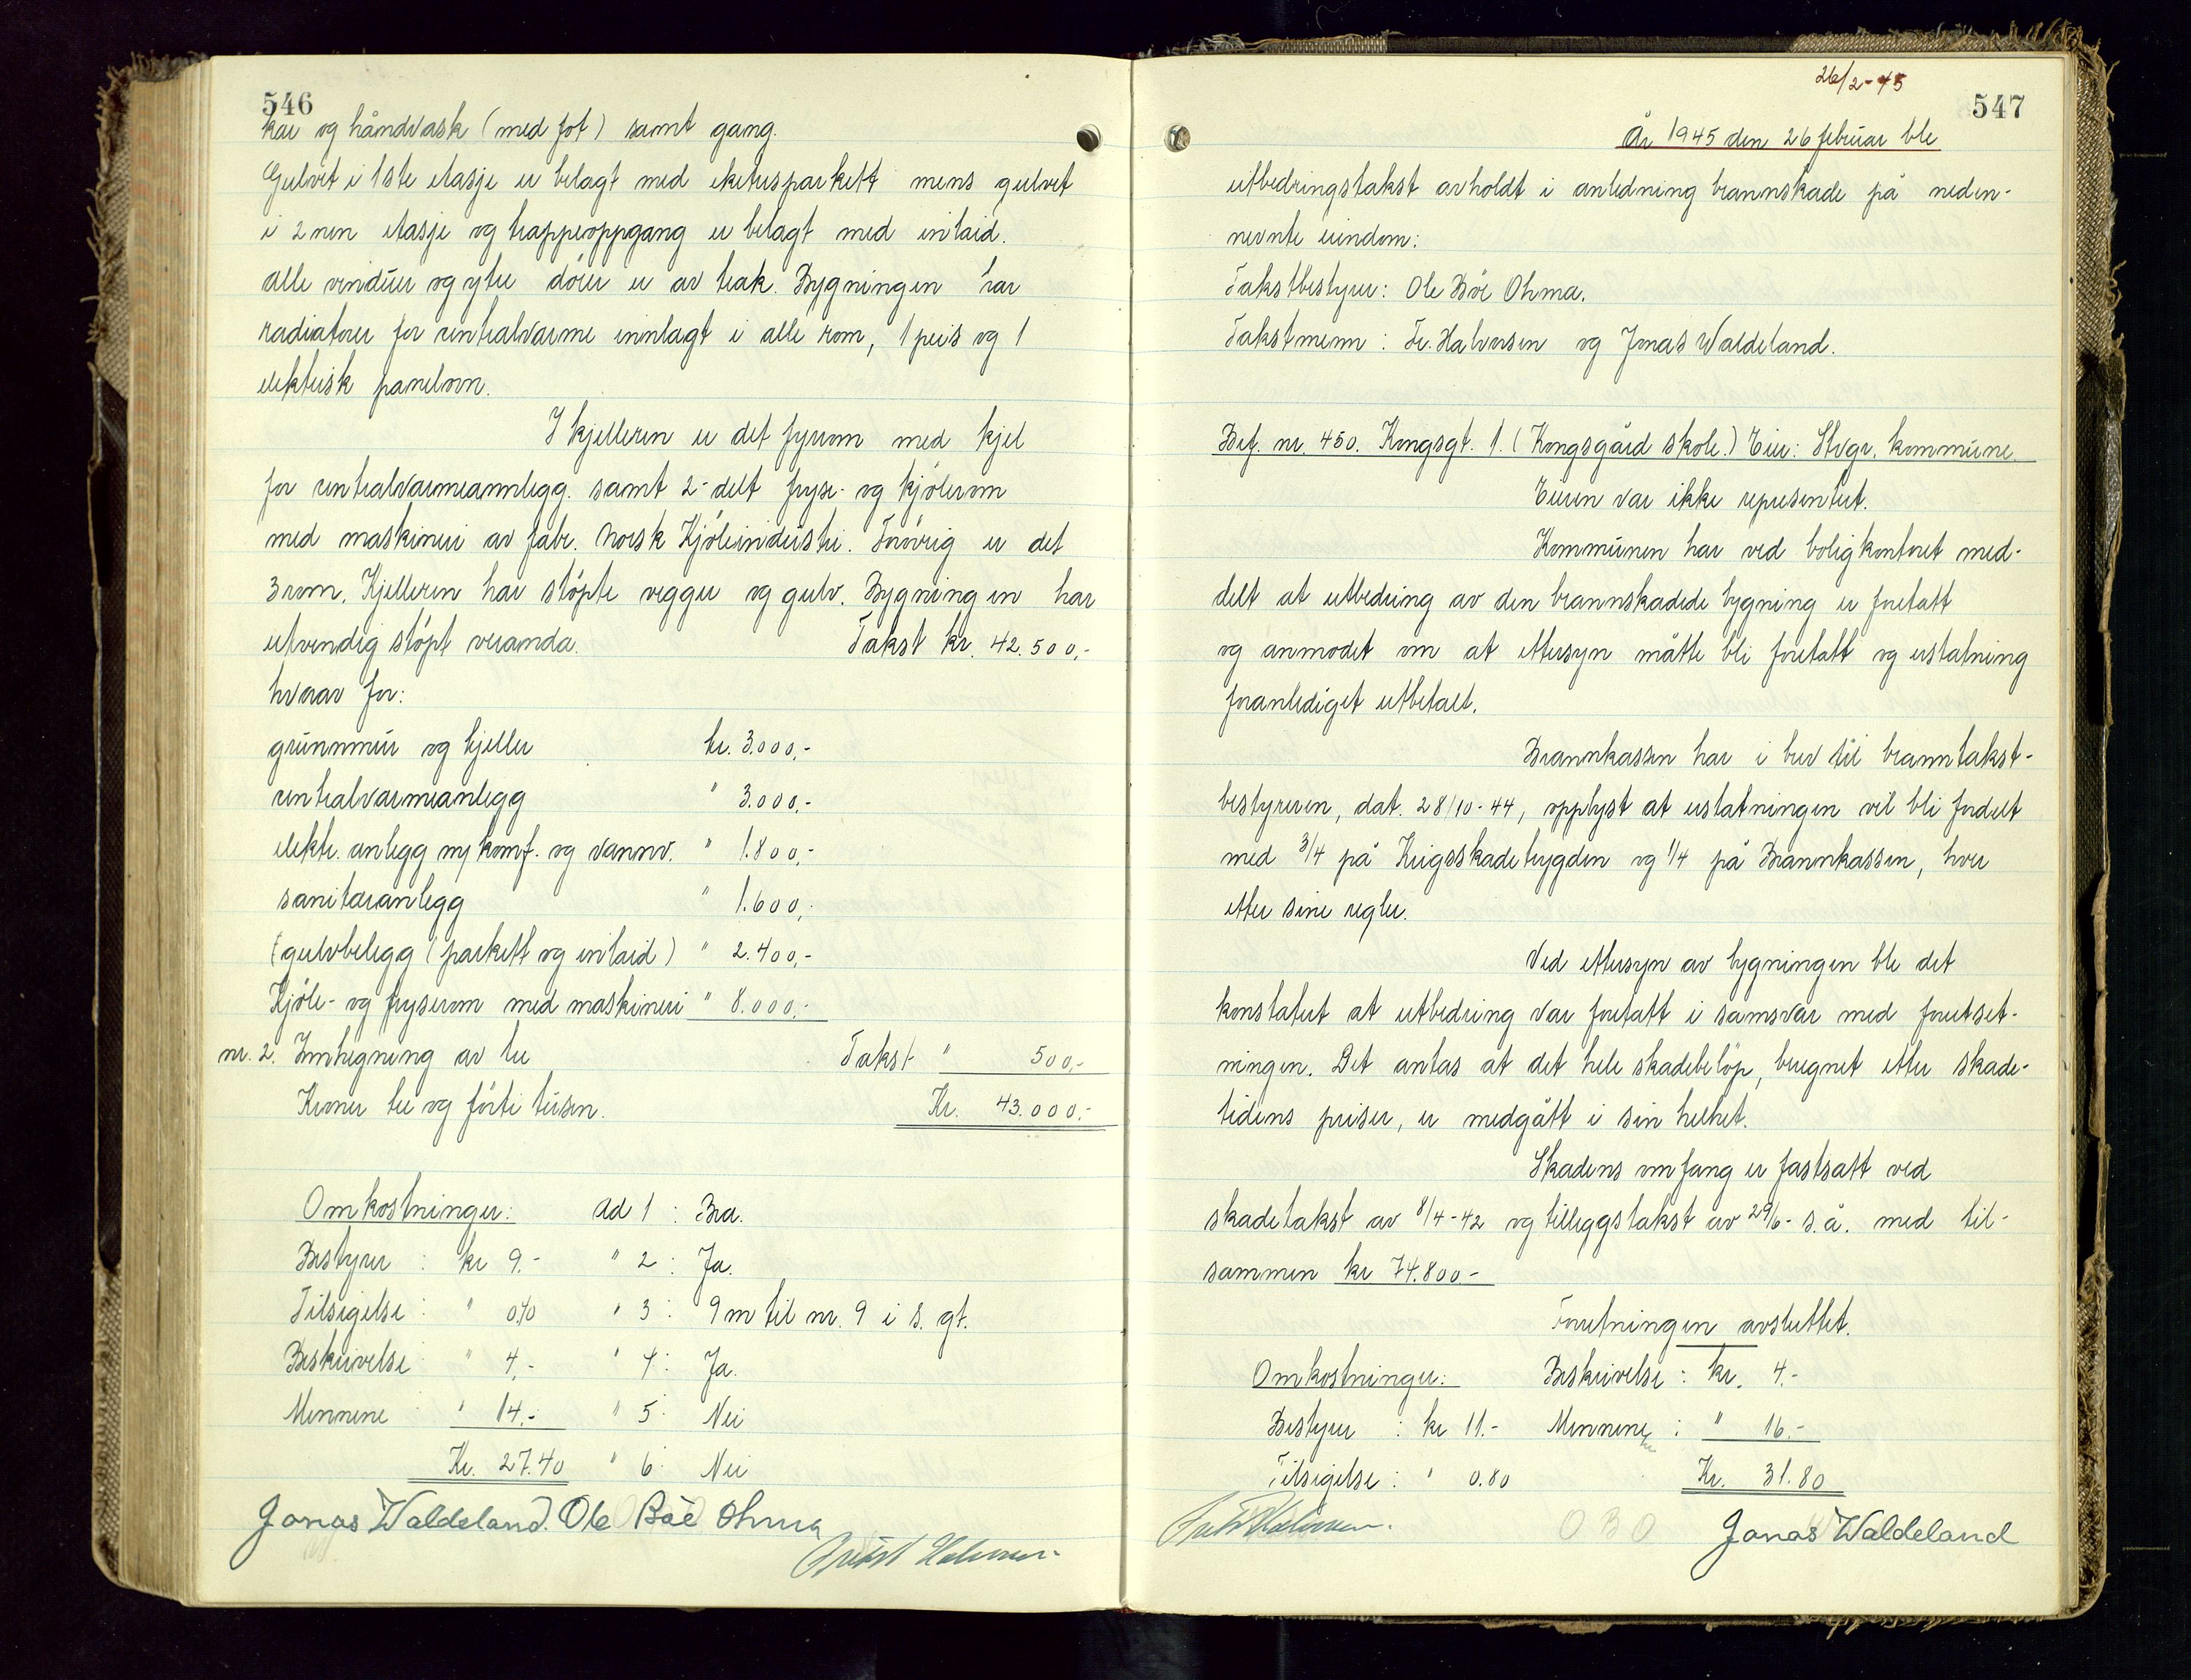 546
kar og håndvask (med fot) samt gang.
Gulvet i 1ste etasje er belagt med eketresparkett mens gulvet
i 2nen etasje og trappeoppgang er belagt med inlaid.
Alle vinduer og ytre dörer er av teak. Bygningen har
radiatorer for sentralvarme innlagt i alle rom, 1 peis og 1
elektrisk panelovn.
I kjelleren er det fyrrom med kjel
for sentralvarmeannlegg. samt 2-delt fryse- og kjölerom
med maskineri av fabr. Norsk Kjöleindustri. Forövrig er det
3 rom. Kjelleren har stöpte vegger og gulv. Bygningen har
utvendig stöpt veranda. Takst kr. 42.500,-
hvorav for:
grunnmur og kjeller kr. 3.000,-
sentralvarmeanlegg " 3.000,-
elektr. anlegg m/ komf. og vannv. " 1.800,-
sanitæranlegg " 1.600,-
(gulvbelegg (parkett og inlaid) " 2.400,-
Kjöle- og fryserom med maskineri " 8.000,-
nr. 2. Innhegning av tre Takst " 500,-
Kroner tre og förti tusen. Kr. 43.000.-
Omkostninger: Ad 1 : Bra.
Bestyrer : kr 9.- " 2 : Ja.
Tilsigelse : " 0.40 " 3 : 9 m til nr. 9 i s. gt.
Beskrivelse " 4,- " 4 : Ja.
Mennene " 14.- " 5 : Nei
Kr. 27.40 " 6 : Nei
Jonas Waldeland. Ole Böe Ohma
Halvorsen
26/2-45
547
År 1945 den 26 februar ble
utbedringstakst avholdt i anledning brannskade på neden-
nevnte eiendom:
Takstbestyrer: Ole Böe Ohma.
Takstmenn : Fr. Halvorsen og Jonas Waldeland.
Bef. nr. 450. Kongsgt. 1. (Kongsgård skole.) Eier: Stvgr. kommune.
Eieren var ikke representert.
Kommunen har ved boligkontoret med-
delt at utbedring av den brannskadede bygning er foretatt
og anmodet om at ettersyn måtte bli foretatt og erstatning
foranlediget utbetalt.
Brannkassen har i brev til branntakst-
bestyreren, dat. 28/10-44, opplyst at erstatningen vil bli fordelt
med 3/4 på Krigsskadetrygden og 1/4 på Brannkassen, hver
etter sine regler.
Ved ettersyn av bygningen ble det
konstatert at utbedring var foretatt i samsvar med forutset-
ningen. Det antas at det hele skadebelöp, beregnet etter skade-
tidens priser, er medgått i sin helhet.
Skadens omfang er fastsatt ved
skadetakst av 8/4-42 og tilleggstakst av 29/6- s.å. med til-
sammen kr 74.800-
Forretningen avsluttet.
Omkostninger: Beskrivelse : kr. 4.-
Bestyrer : kr 11.- Mennene : " 16.-
Tilsigelse : " 0.80 Kr. 31.80
Halvorsen. O B O Jonas Waldeland